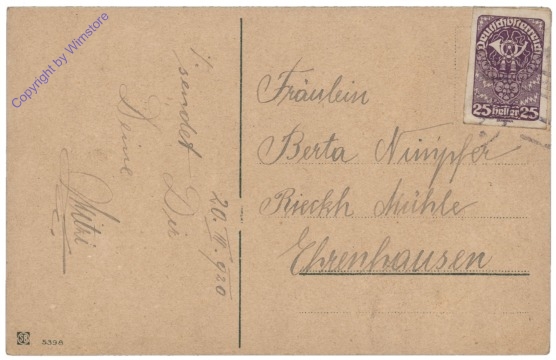 Copyright by Wimstore
!/ sendet Dir
Deine
Mitzi
20. II. 920
Deutschösterreich
25 heller 25
Fräulein
Berta Nimpfer
Rieckh Mühle
Ehrenhausen
5398